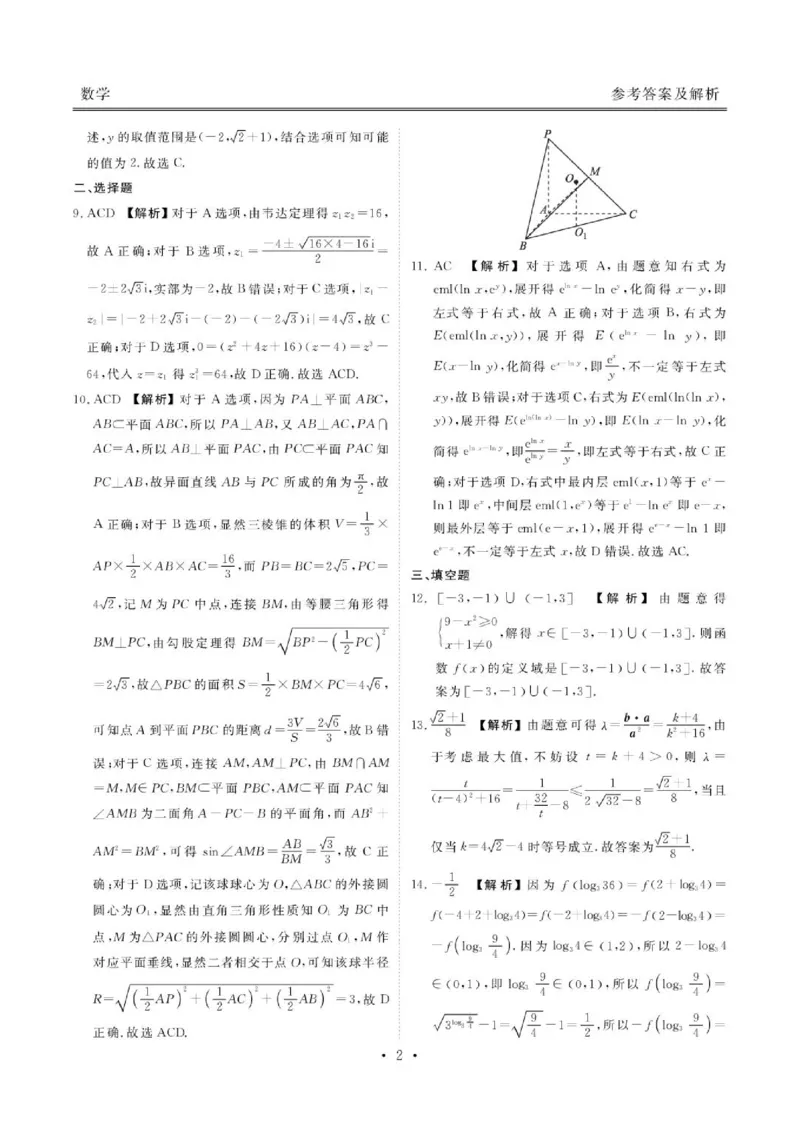 数学
参考答案及解析
述,y的取值范围是(-2,√2+1),结合选项可知可能
的值为2.故选C.
二、选择题
9. ACD 【解析】对于A选项,由韦达定理得z₁z₂=16,
故A正确;对于B选项,z₁=(-4±√(16×4-16)i)/2=
-2±2√3i,实部为-2,故B错误;对于C选项,|z₁-
z₂|=|-2+2√3i-(-2)-(-2√3)i|=4√3,故C
正确;对于D选项,0=(z²+4z+16)(z-4)=z³-
64,代入z=z₁得z₁³=64,故D正确.故选ACD.
10. ACD 【解析】对于A选项,因为PA⊥平面ABC,
AB⊂平面ABC,所以PA⊥AB,又AB⊥AC,PA∩
AC=A,所以AB⊥平面PAC,由PC⊂平面PAC知
PC⊥AB,故异面直线AB与PC所成的角为π/2,故
A正确;对于B选项,显然三棱锥的体积V=1/3×
AP×1/2×AB×AC=16/3,而PB=BC=2√5,PC=
4√2,记M为PC中点,连接BM,由等腰三角形得
BM⊥PC,由勾股定理得BM=√(BP²-(1/2PC)²)
=2√3,故△PBC的面积S=1/2×BM×PC=4√6,
可知点A到平面PBC的距离d=3V/S=2√6/3,故B错
误;对于C选项,连接AM,AM⊥PC,由BM∩AM
=M,M∈PC,BM⊂平面PBC,AM⊂平面PAC知
∠AMB为二面角A-PC-B的平面角,而AB²+
AM²=BM²,可得sin∠AMB=AB/BM=√3/3,故C正
确;对于D选项,记该球球心为O,△ABC的外接圆
圆心为O₁,显然由直角三角形性质知O₁为BC中
点,M为△PAC的外接圆圆心,分别过点O₁,M作
对应平面垂线,显然二者相交于点O,可知该球半径
R=√((1/2AP)²+(1/2AC)²+(1/2AB)²)=3,故D
正确.故选ACD.
P
M
O
A
C
B
O₁
11. AC 【解析】对于选项A,由题意知右式为
eml(ln x,eʸ),展开得e^(ln x)-ln eʸ,化简得x-y,即
左式等于右式,故A正确;对于选项B,右式为
E(eml(ln x,y)),展开得E(e^(ln x)-ln y),即
E(x-ln y),化简得e^(x-ln y),即eˣ/y,不一定等于左式
xy,故B错误;对于选项C,右式为E(eml(ln(ln x),
y)),展开得E(e^(ln(ln x))-ln y),即E(ln x-ln y),化
简得e^(ln x-ln y),即e^(ln x)/e^(ln y)=x/y,即左式等于右式,故C正
确;对于选项D,右式中最内层eml(x,1)等于eˣ-
ln 1即eˣ,中间层eml(1,eˣ)等于e¹-ln eˣ即e-x,
则最外层等于eml(e-x,1),展开得e^(e-x)-ln 1即
e^(e-x),不一定等于左式x,故D错误.故选AC.
三、填空题
12. [-3,-1)∪(-1,3] 【解析】由题意得
{9-x²≥0
x+1≠0,解得x∈[-3,-1)∪(-1,3].则函
数f(x)的定义域是[-3,-1)∪(-1,3].故答
案为[-3,-1)∪(-1,3].
13. (√2+1)/8 【解析】由题意可得λ=b·a/a²=(k+4)/(k²+16),由
于考虑最大值,不妨设t=k+4>0,则λ=
t/((t-4)²+16)=1/(t+32/t-8)≤1/(2√32-8)=(√2+1)/8,当且
仅当k=4√2-4时等号成立.故答案为(√2+1)/8.
14. -1/2 【解析】因为f(log₃36)=f(2+log₃4)=
f(-4+2+log₃4)=f(-2+log₃4)=-f(2-log₃4)=
-f(log₃ 9/4).因为log₃4∈(1,2),所以2-log₃4
∈(0,1),即log₃ 9/4∈(0,1),所以f(log₃ 9/4)=
√(3^(log₃ 9/4))-1=√(9/4)-1=1/2,所以-f(log₃ 9/4)=
• 2 •